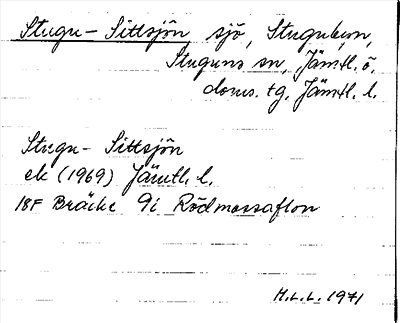 Stugu-Sittsjön sjö, Stugubyn,
Stuguns sn, Jämtl. ö.
doms. tg. Jämtl. l.
Stugu-Sittsjön
ek (1969) Jämtl. l.
18F Bräcke 9i Rödmossaflon
H.L.L. 1971